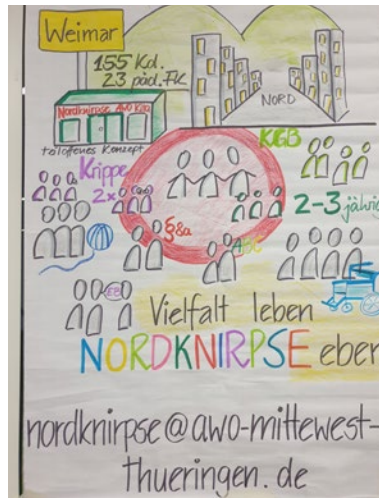 Weimar
155 Kd.
23 päd. FK
Nordknirpse AWO Kita
NORD
teiloffenes Konzept
KGB
Krippe
2x
2-3 jährig
§8a
ABC
EB
Vielfalt leben
NORDKNIRPSE eben
nordknirpse@awo-mittewest-
thueringen.de